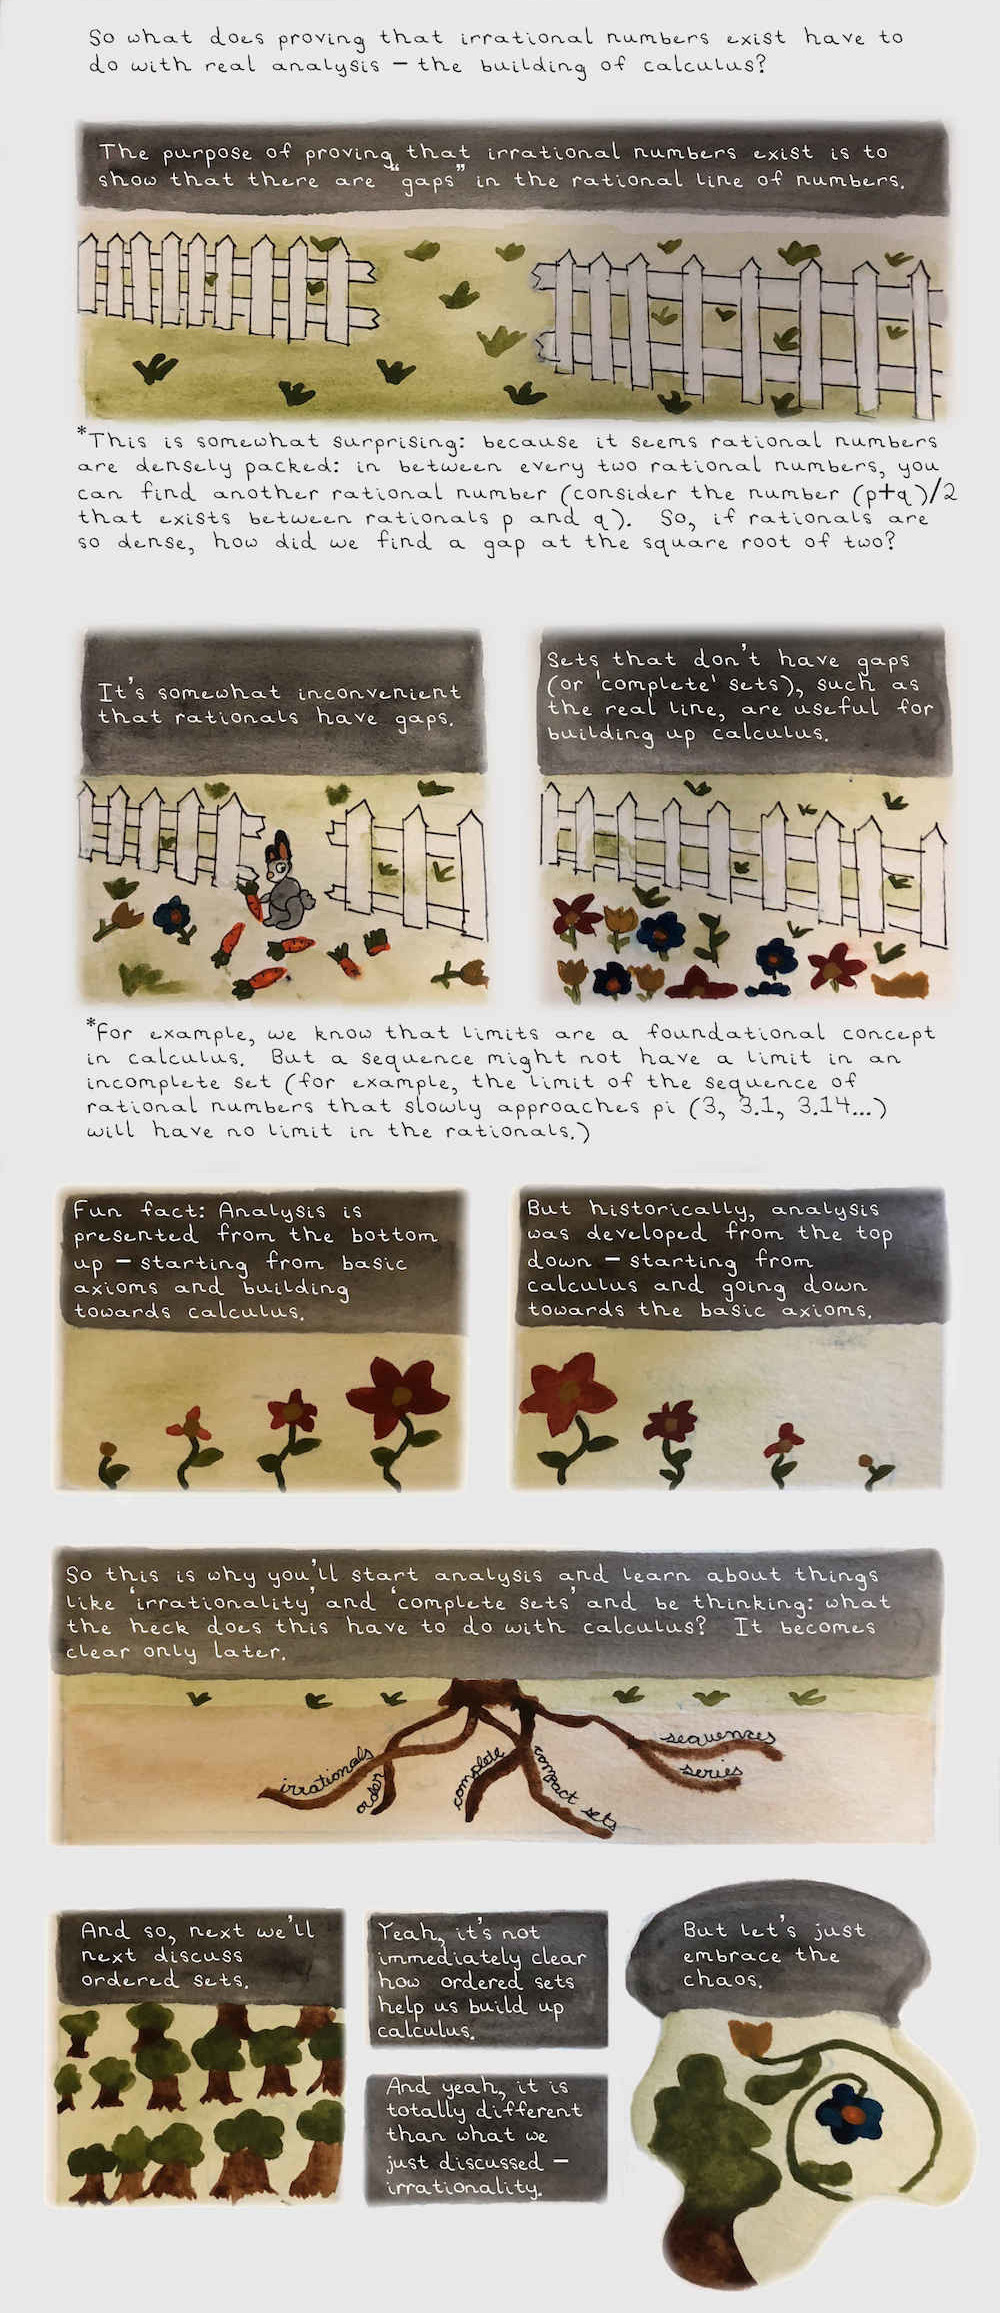 So what does proving that irrational numbers exist have to
do with real analysis – the building of calculus?
The purpose of proving that irrational numbers exist is to
show that there are "gaps" in the rational line of numbers.
*This is somewhat surprising: because it seems rational numbers
are densely packed: in between every two rational numbers, you
can find another rational number (consider the number (p+q)/2
that exists between rationals p and q). So, if rationals are
so dense, how did we find a gap at the square root of two?
It's somewhat inconvenient
that rationals have gaps.
Sets that don't have gaps
(or 'complete' sets), such as
the real line, are useful for
building up calculus.
*For example, we know that limits are a foundational concept
in calculus. But a sequence might not have a limit in an
incomplete set (for example, the limit of the sequence of
rational numbers that slowly approaches pi (3, 3.1, 3.14...)
will have no limit in the rationals.)
Fun fact: Analysis is
presented from the bottom
up – starting from basic
axioms and building
towards calculus.
But historically, analysis
was developed from the top
down – starting from
calculus and going down
towards the basic axioms.
So this is why you'll start analysis and learn about things
like 'irrationality' and 'complete sets' and be thinking: what
the heck does this have to do with calculus? It becomes
clear only later.
irrationals
order
complete
compact sets
sequences
series
And so, next we'll
next discuss
ordered sets.
Yeah, it's not
immediately clear
how ordered sets
help us build up
calculus.
And yeah, it is
totally different
than what we
just discussed –
irrationality.
But let's just
embrace the
chaos.